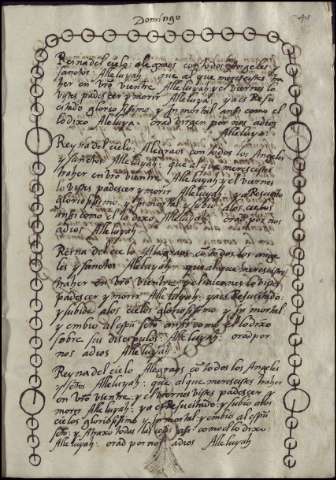 Domingo
Reina del cielo alegraos con todos angeles y
sanctos Alleluyah: que al que merecistes tra
her en vro vientre, Alleluyah y el viernes lo
vistes padescer y morir Alleluya: ya es Resu
citado gloriosissimo, y Inmortal ansi como el
lo dixo Alleluya orad virgen por nos adios
Alleluyah
Reyna del cielo Alegraos con todos los Angeles
y sanctos Alleluyah: que al que merecistes
traher en vro vientre, Alleluyah y el viernes
lo vistes padescer y morir Alleluyah y a Resucitado
gloriosissimo, y Inmortal y subio a los cielos
ansi como el lo dixo, Alleluyah orad por nos
adios Alleluyah
Reina del cielo Alegraos con todos los ange
les y sanctos Alleluyah: que al que merecistes
traher en vro vientre y el viernes lo vistes
padescer y morir Alleluyah: ya es Resucitado
y subido a los cielos gloriosissimo y Inmortal
y embio al espu sto ansi como el lo dixo
sobre sus discipulos Alleluyah: orad por
nos adios Alleluyah
Reyna del cielo Alegraos con todos los Angeles
y stos Alleluyah: que al que merecistes traher
en vro vientre, y el viernes vistes padescer y
morir Alleluyah: ya es Resucitado y subio a los
cielos gloriosissimo y Inmortal y embio al espu
sto: y atraxo todas las cosas asi como el lo dixo
Alleluyah: orad por nos adios Alleluyah